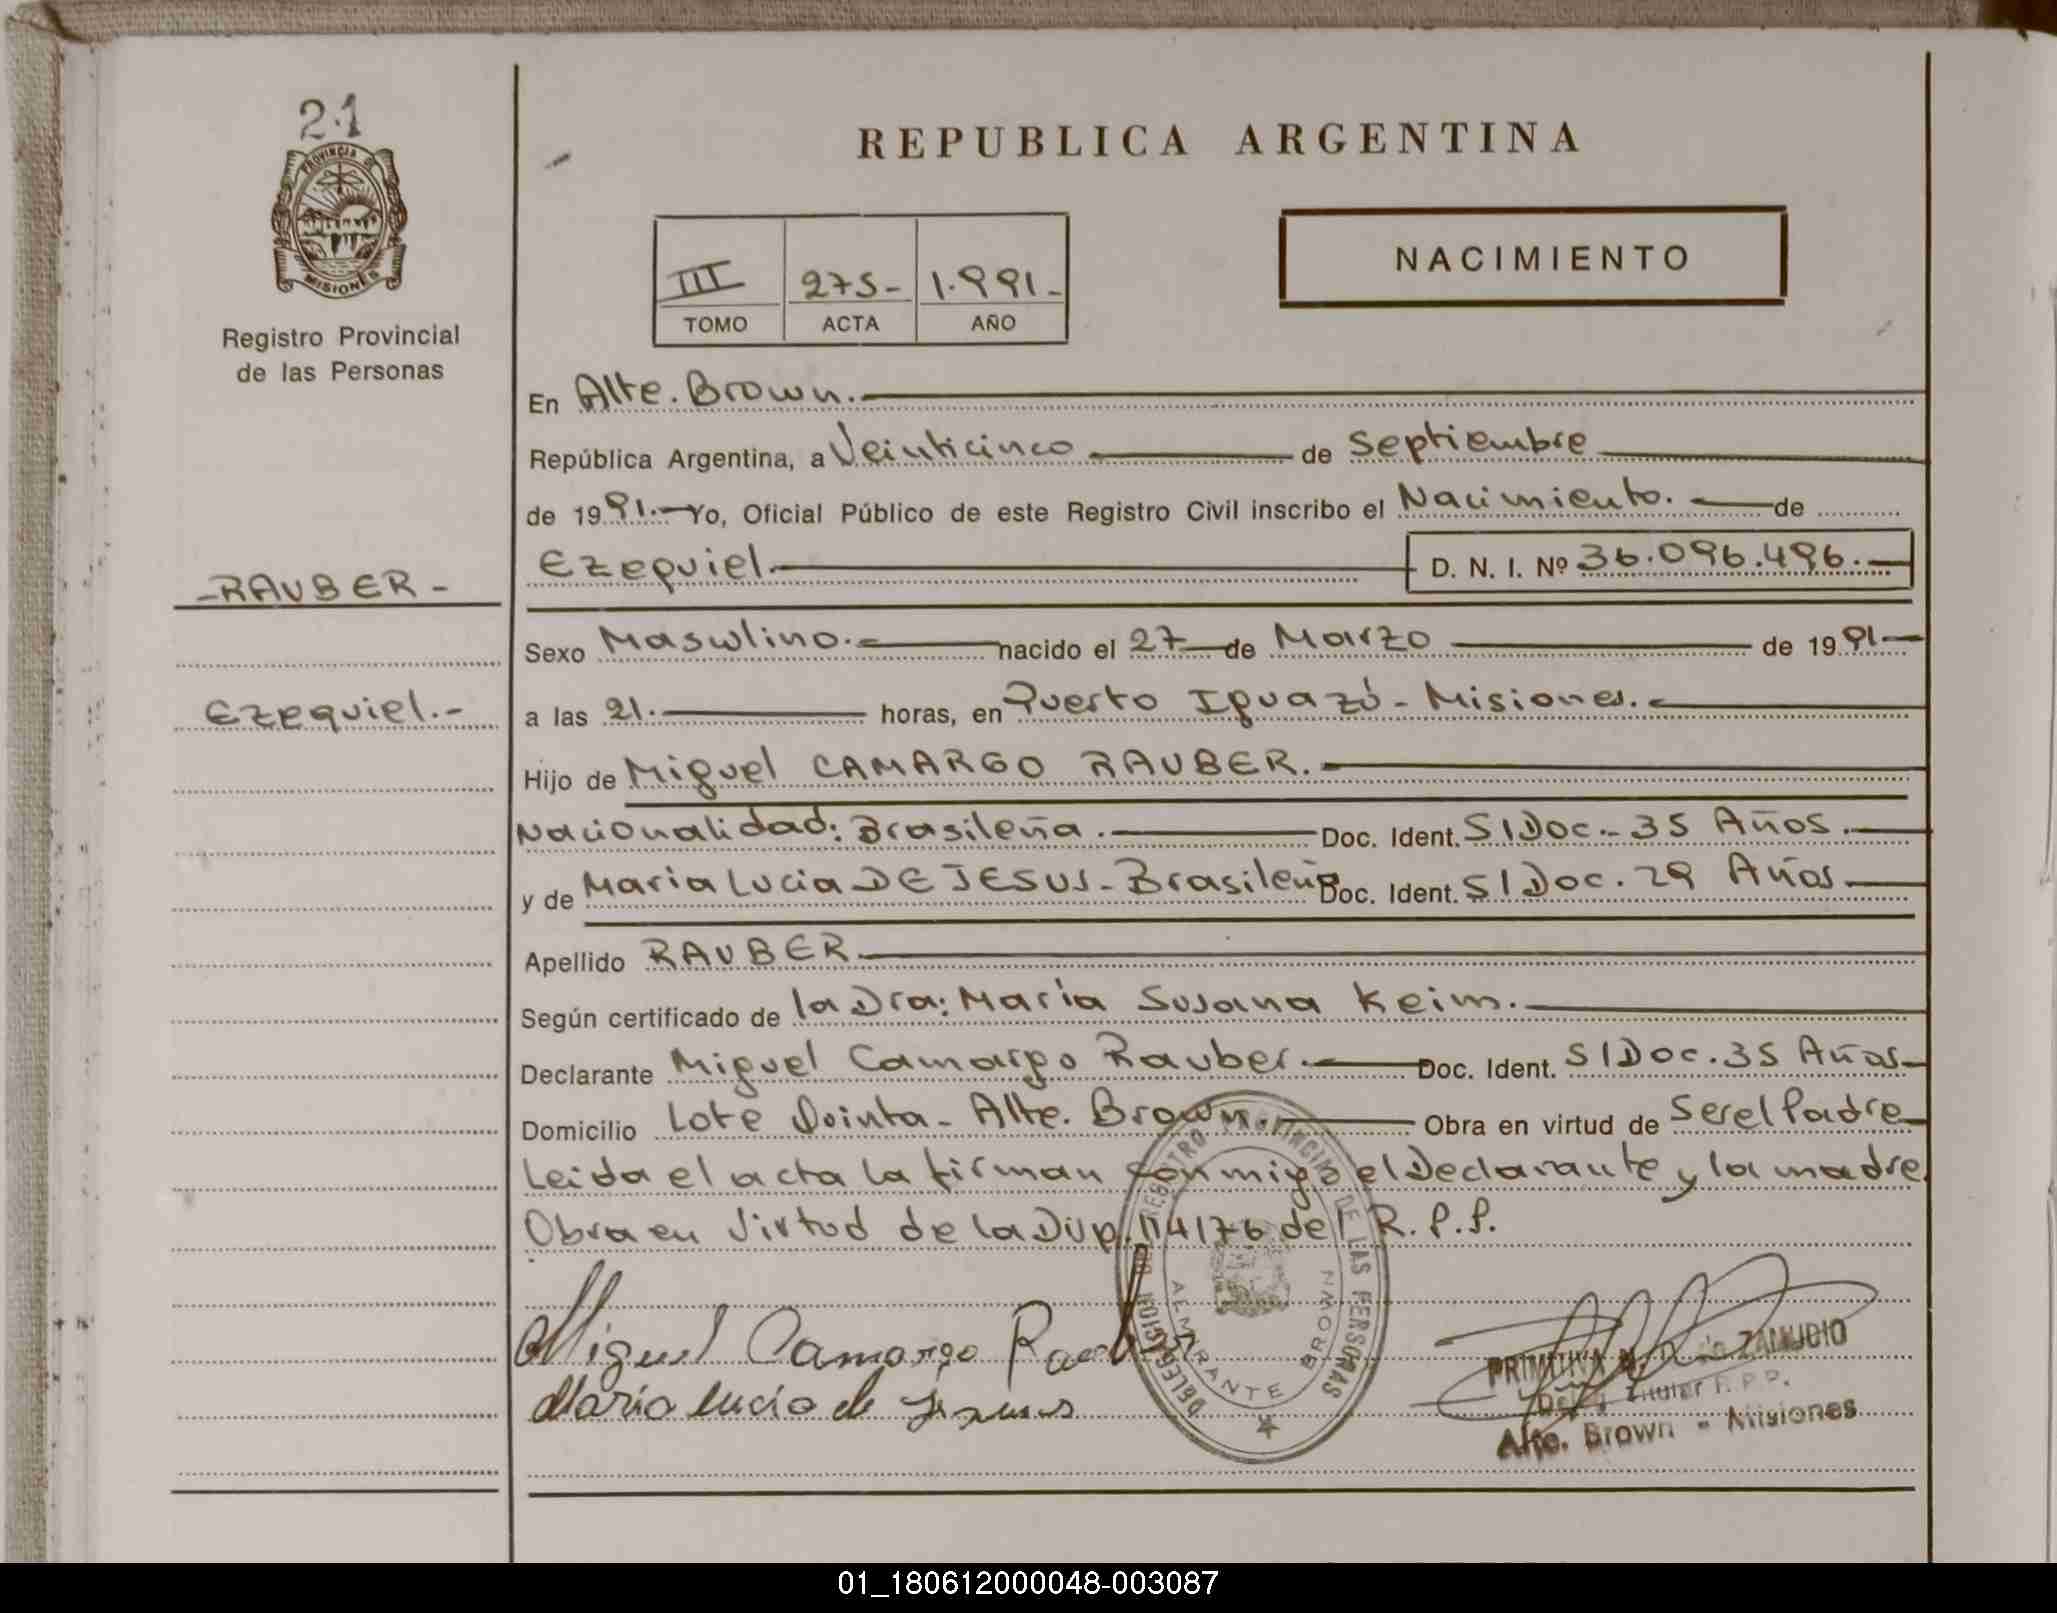 21
PROVINCIA DE
MISIONES
Registro Provincial
de las Personas
REPUBLICA ARGENTINA
III 275- 1.991-
TOMO ACTA AÑO
NACIMIENTO
En Alte. Brown.
República Argentina, a Veinticinco de Septiembre
de 1991.- Yo, Oficial Público de este Registro Civil inscribo el Nacimiento. de
-RAUBER-
Ezequiel. D. N. I. Nº 36.096.496.-
Sexo Masculino. nacido el 27 de Marzo de 1991-
Ezequiel.-
a las 21. horas, en Puerto Iguazú - Misiones.
Hijo de Miguel CAMARGO RAUBER.
Nacionalidad: Brasileña. Doc. Ident. S/Doc.- 35 Años.
y de Maria Lucia DE JESUS - Brasileña Doc. Ident. S/Doc. 29 Años
Apellido RAUBER
Según certificado de la Dra: María Susana Keim.
Declarante Miguel Camargo Rauber. Doc. Ident. S/Doc. 35 Años
Domicilio Lote Quinta - Alte. Brown. Obra en virtud de Ser el Padre
Leida el acta la firman conmigo el Declarante y la madre
Obra en Virtud de la Disp. 114/76 del R.P.P.
Miguel Camargo Raub
Maria lucia de Jesus
REGISTRO PROVINCIAL DE LAS PERSONAS
DELEGACION
ALMIRANTE BROWN
PRIMITIVA ZAMUDIO
Titular R.P.P.
Alte. Brown - Misiones
01_180612000048-003087